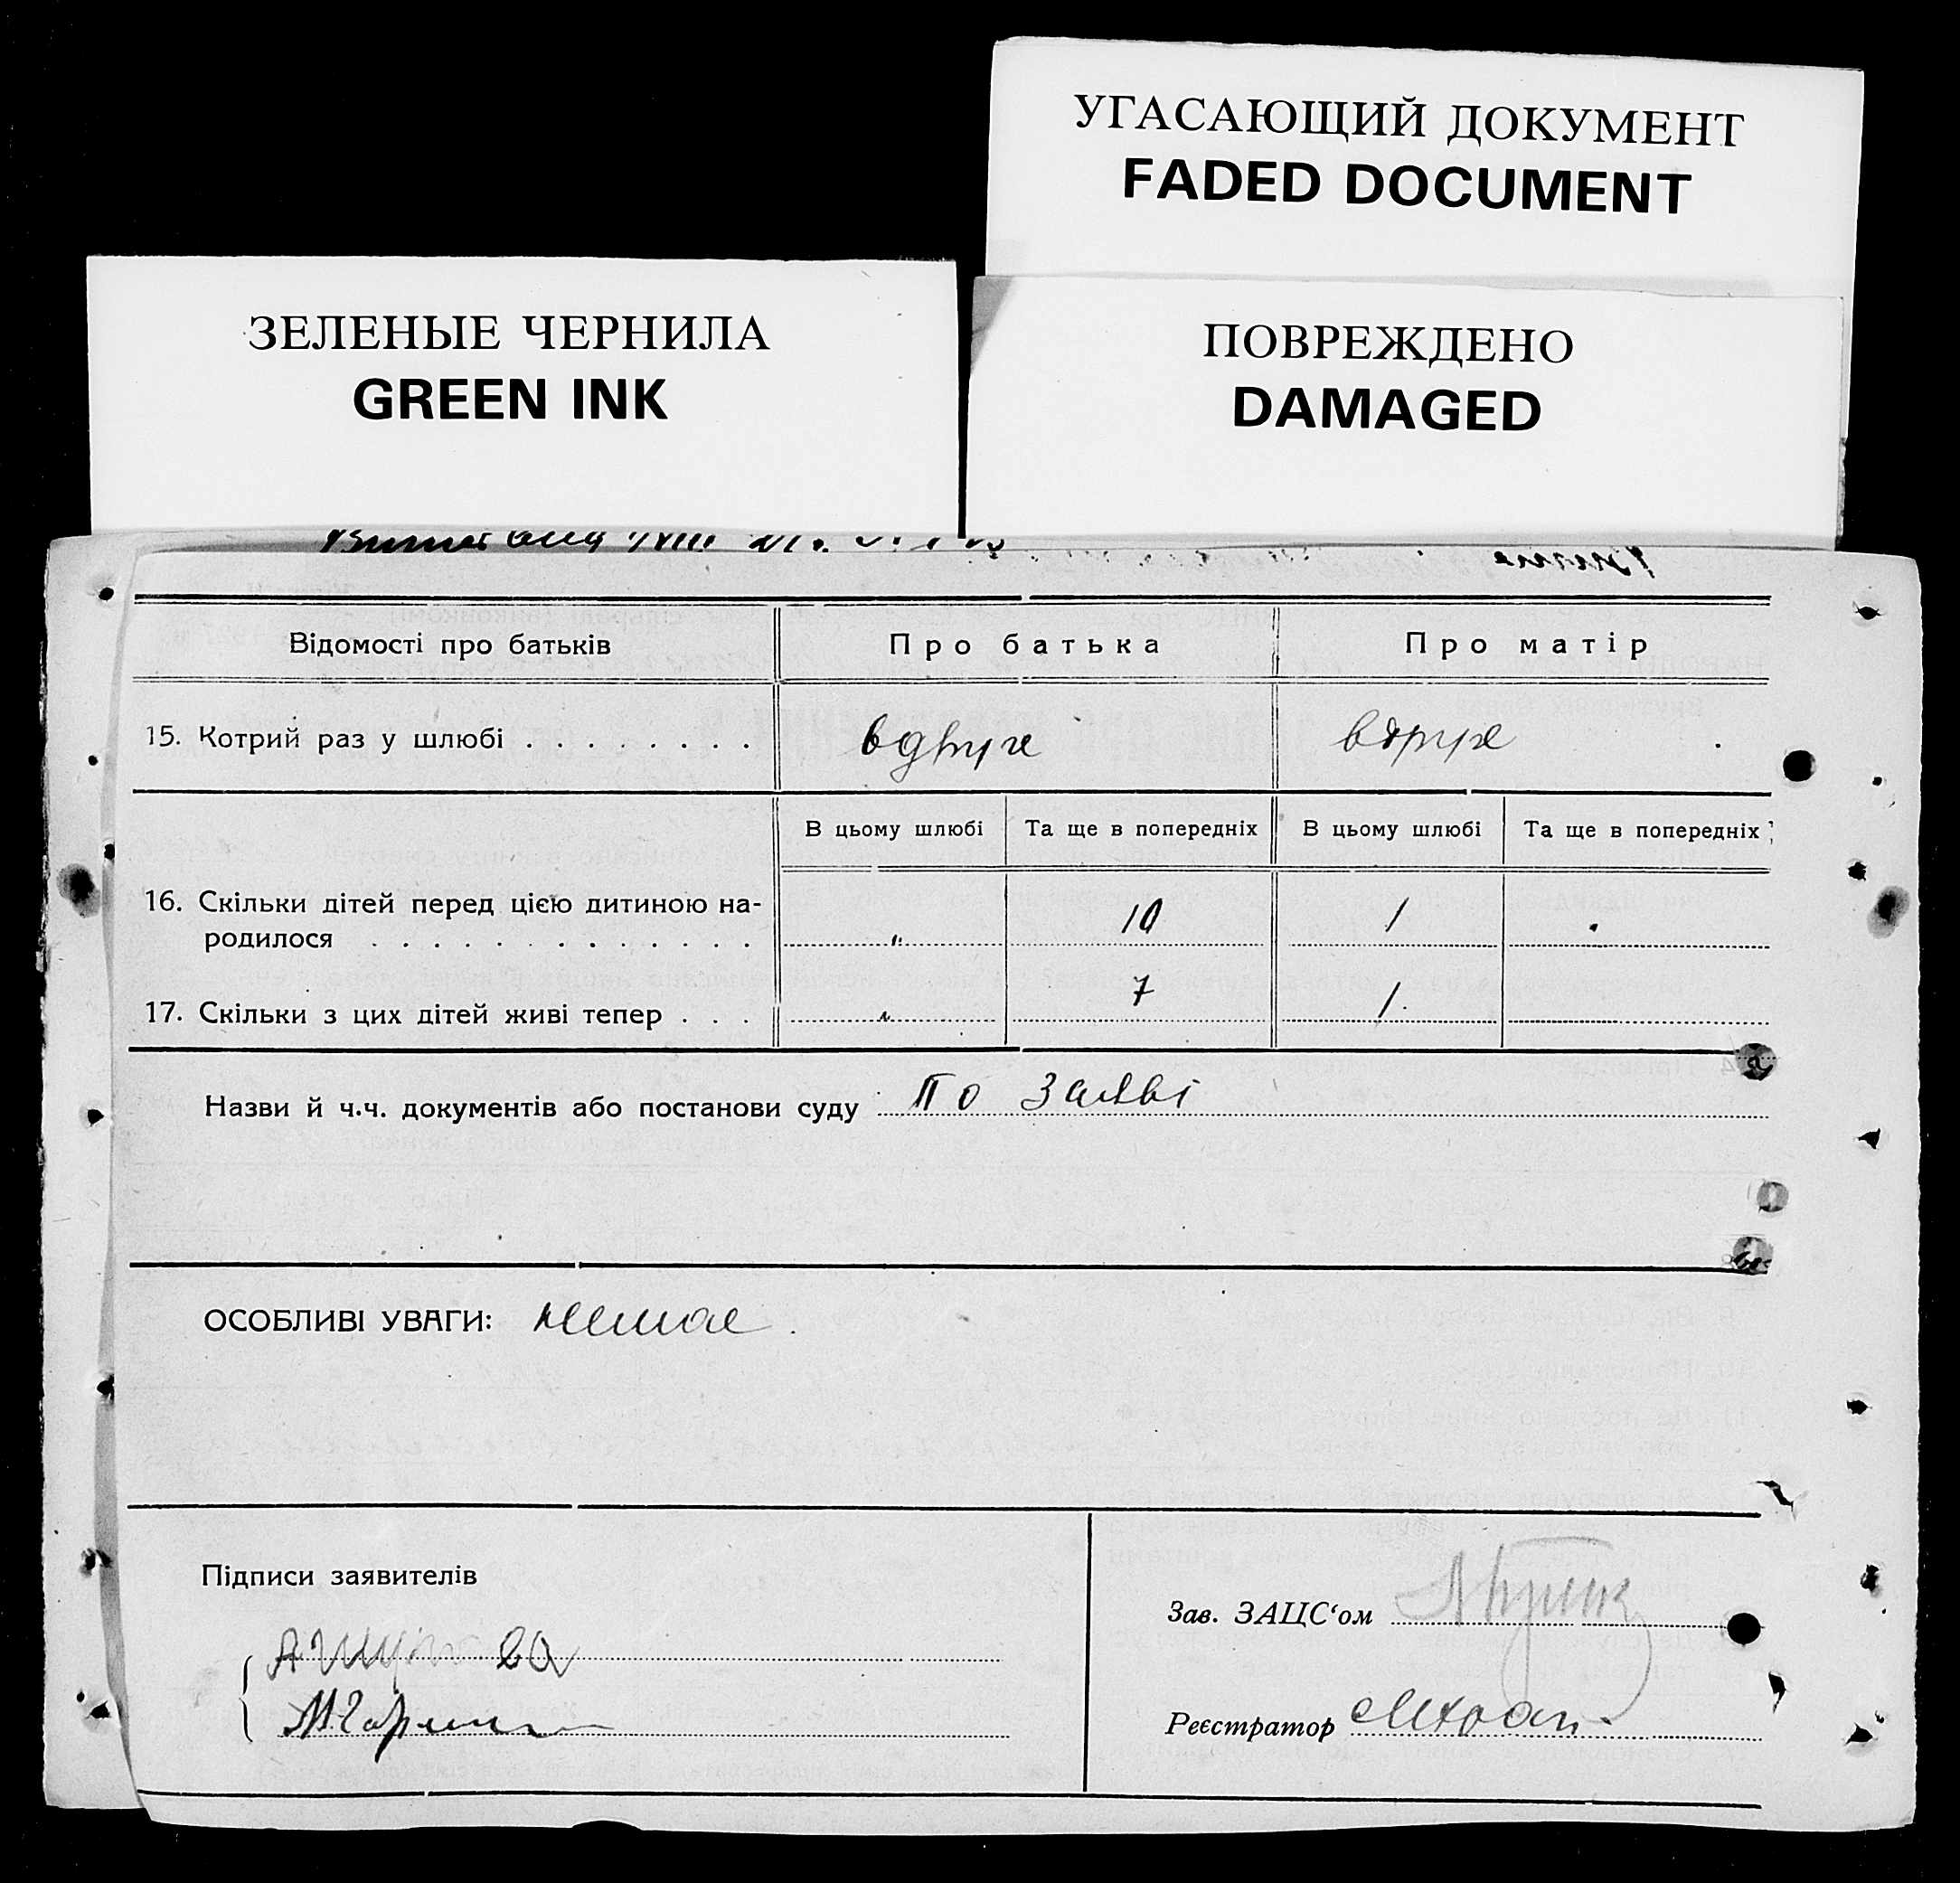 УГАСАЮЩИЙ ДОКУМЕНТ
FADED DOCUMENT
ЗЕЛЕНЫЕ ЧЕРНИЛА
GREEN INK
ПОВРЕЖДЕНО
DAMAGED
Відомості про батьків Про батька Про матір
15. Котрий раз у шлюбі . . . . . . . . вдруге вдруге
В цьому шлюбі Та ще в попередніх В цьому шлюбі Та ще в попередніх
16. Скільки дітей перед цією дитиною на-
родилося . . . . . . . . . . . . . „ 10 1
17. Скільки з цих дітей живі тепер . . . „ 7 1
Назви й ч.ч. документів або постанови суду По заяві
ОСОБЛИВІ УВАГИ: немає.
Підписи заявителів
Зав. ЗАЦС‘ом
Реєстратор